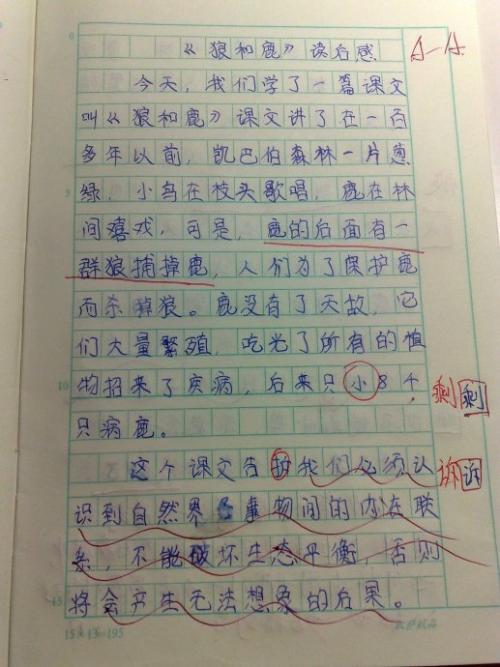 《狼和鹿》读后感 A-A
今天，我们学了一篇课文
叫《狼和鹿》课文讲了在一百
多年以前，凯巴伯森林一片葱
绿，小鸟在枝头歌唱，鹿在林
间嬉戏，可是，鹿的后面有一
群狼捕掉鹿，人们为了保护鹿
而杀掉狼。鹿没有了天敌，它
们大量繁殖，吃光了所有的植
物招来了疾病，后来只小8千 剩剩
只病鹿。
这个课文告我们必须认 诉诉
识到自然界事物间的内在联
系，不能破坏生态平衡，否则
将会产生无法想象的后果。
15×13=195